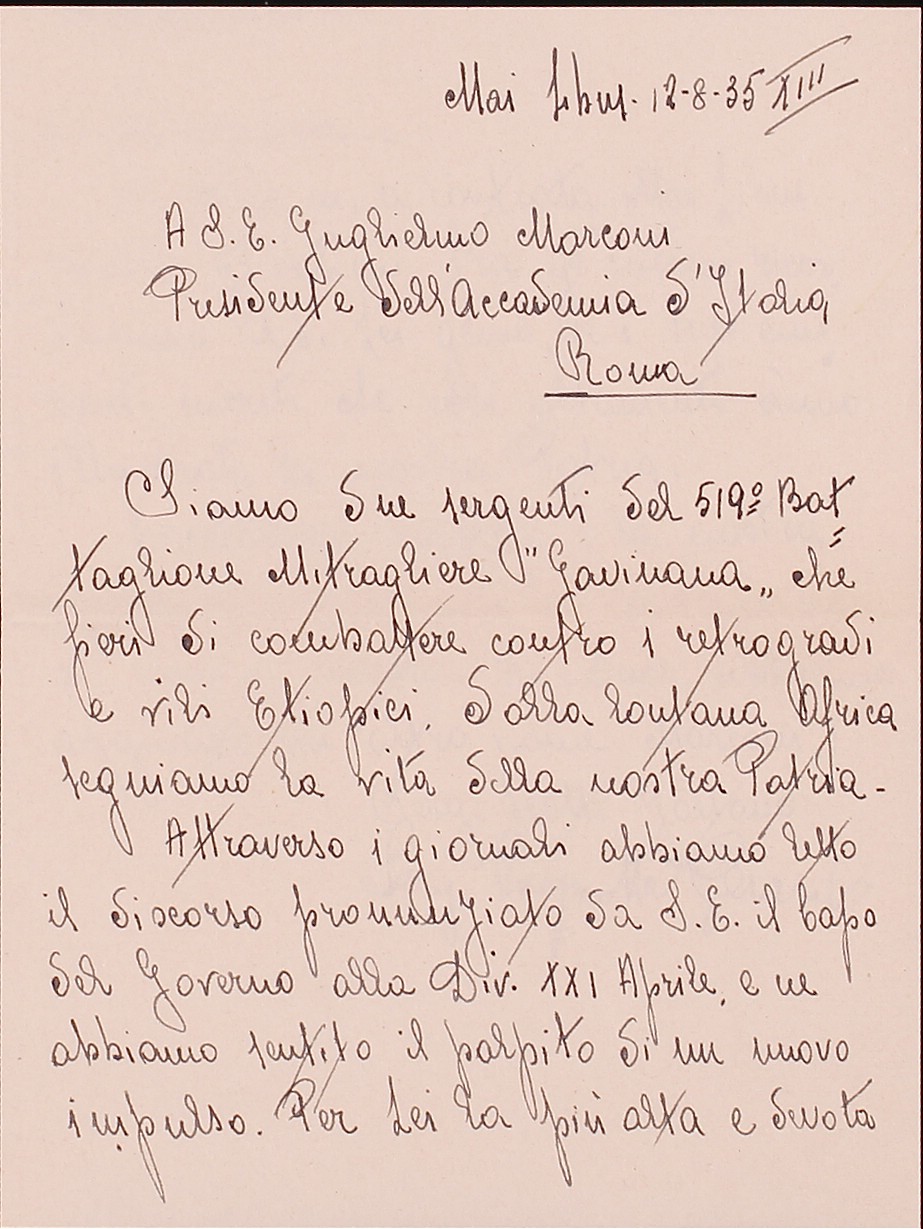 Mai 12-8-35 XIII
A S.E. Guglielmo Marconi
Presidente dell'Accademia d'Italia
Roma
Siamo due sergenti del 519º Bat=
taglione Mitragliere "Gavinana„ che
fieri di combattere contro i retrogradi
e vili Etiopici, dalla lontana Africa
seguiamo la vita della nostra Patria-
Attraverso i giornali abbiamo letto
il discorso pronunziato da S.E. il Capo
del Governo alla Div. XXI Aprile, e ne
abbiamo sentito il palpito di un nuovo
impulso. Per Lei la più alta e devota